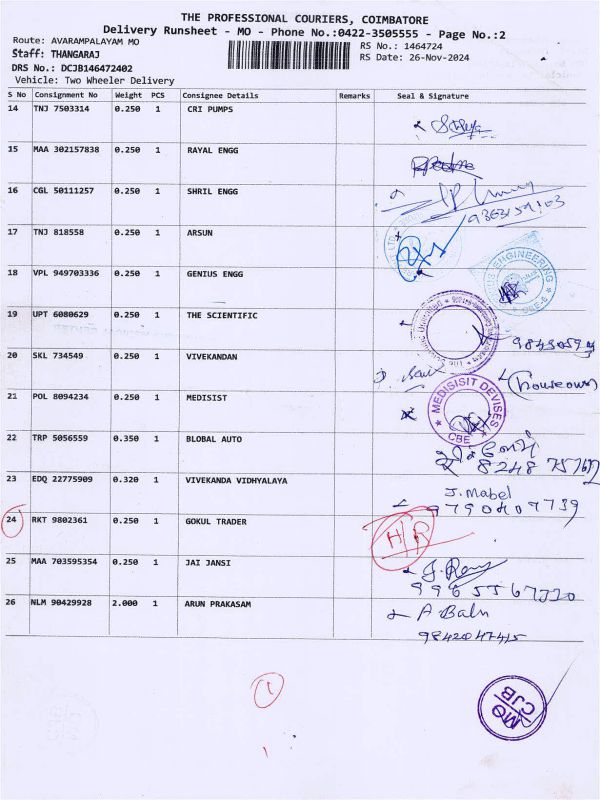 THE PROFESSIONAL COURIERS, COIMBATORE
Delivery Runsheet - MO - Phone No.:0422-3505555 - Page No.:2
Route: AVARAMPALAYAM MO
RS No.: 1464724
Staff: THANGARAJ
RS Date: 26-Nov-2024
DRS No.: DCJB146472402
Vehicle: Two Wheeler Delivery
S No Consignment No Weight PCS Consignee Details Remarks Seal & Signature
14 TNJ 7503314 0.250 1 CRI PUMPS
15 MAA 302157838 0.250 1 RAYAL ENGG
16 CGL 50111257 0.250 1 SHRIL ENGG
9363159103
17 TNJ 818558 0.250 1 ARSUN
18 VPL 949703336 0.250 1 GENIUS ENGG
ENGINEERING
CBE-6
19 UPT 6080629 0.250 1 THE SCIENTIFIC
20 SKL 734549 0.250 1 VIVEKANDAN
21 POL 8094234 0.250 1 MEDISIST
MEDISISIT DEVISES
CBE
22 TRP 5056559 0.350 1 BLOBAL AUTO
23 EDQ 22775909 0.320 1 VIVEKANDA VIDHYALAYA
J. Mabel
9790409739
24 RKT 9802361 0.250 1 GOKUL TRADER
H/R
25 MAA 703595354 0.250 1 JAI JANSI
26 NLM 90429928 2.000 1 ARUN PRAKASAM
A Balu
9842047415
1
MO
CJB